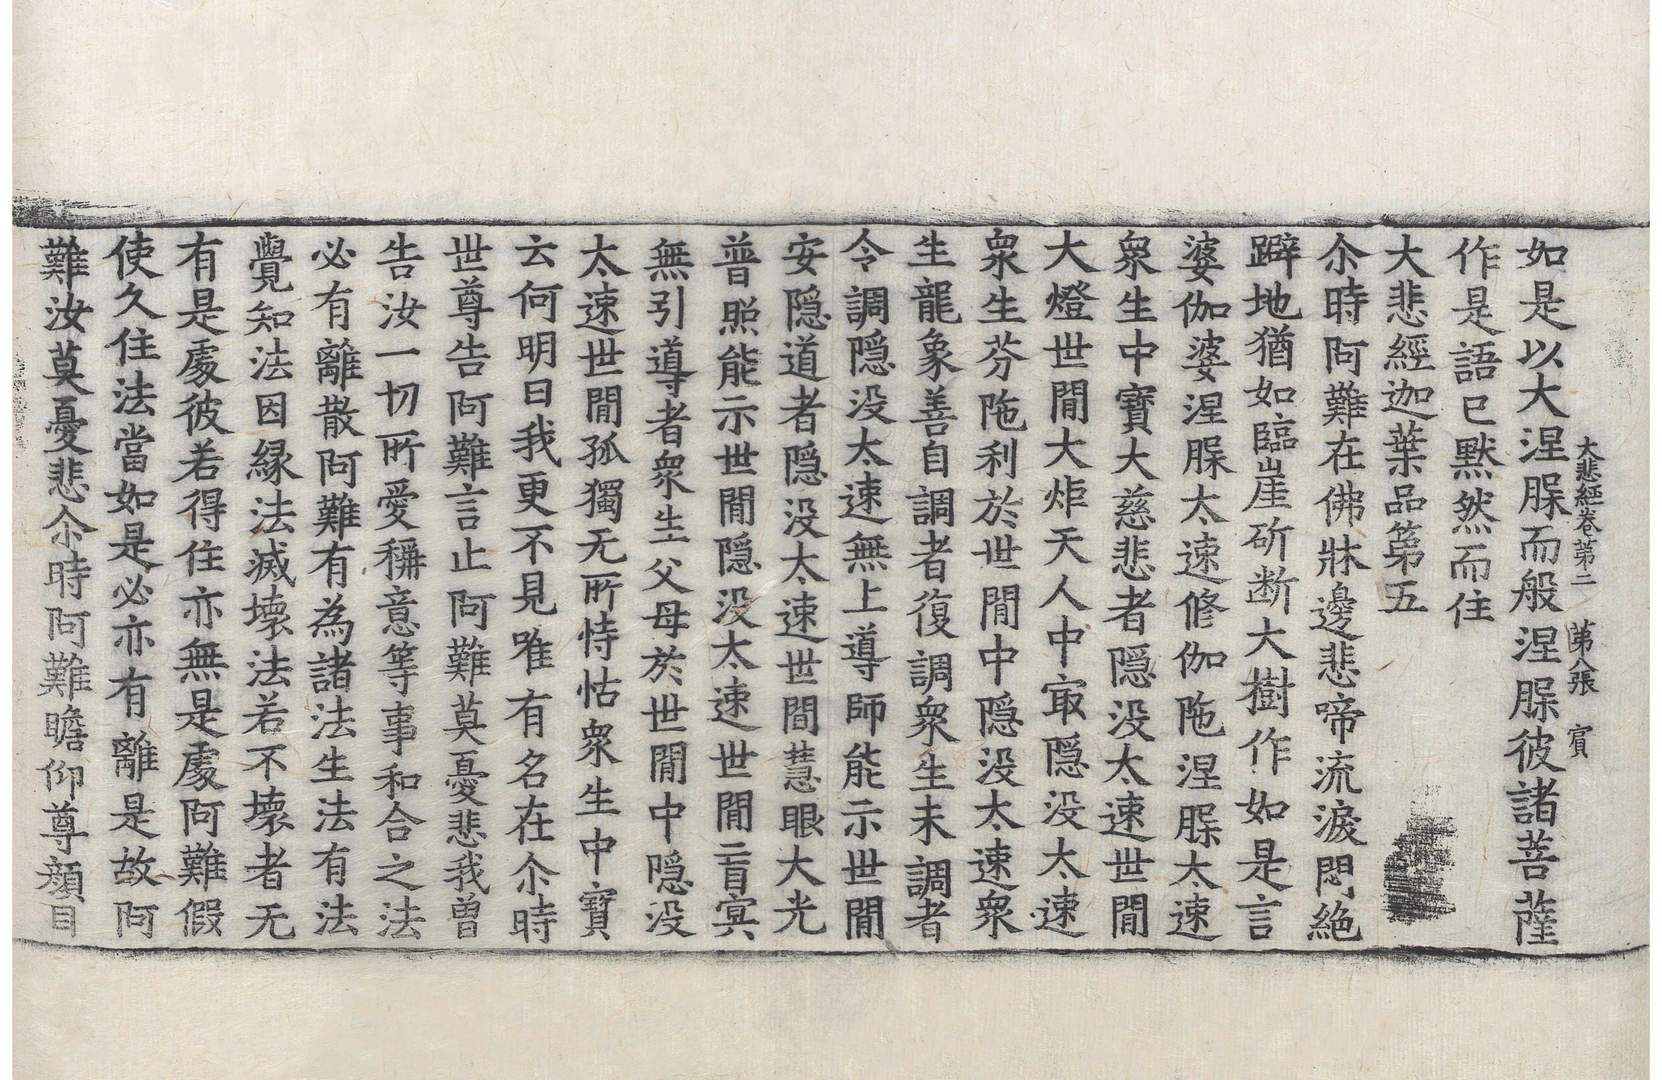 大悲經卷第二 第八張 賓
如是以大涅䏶而般涅䏶彼諸菩薩
作是語已默然而住
大悲經迦葉品第五
尒時阿難在佛牀邊悲啼流淚悶絶
躃地猶如臨崖斫断大樹作如是言
婆伽婆涅䏶太速修伽陁涅䏶太速
衆生中寶大慈悲者隱没太速世閒
大燈世閒大炬天人中㝡隱没太速
衆生芬陁利於世閒中隱没太速衆
生龍象善自調者復調衆生未調者
令調隱没太速無上導師能示世閒
安隱道者隱没太速世間慧眼大光
普照能示世閒隱没太速世閒盲冥
無引導者衆生父母於世閒中隱没
太速世閒孤獨无所恃怙衆生中寶
云何明日我更不見唯有名在尒時
世尊告阿難言止阿難莫憂悲我曽
告汝一切所愛稱意等事和合之法
必有離散阿難有為諸法生法有法
覺知法因縁法滅壞法若不壞者无
有是處彼若得住亦無是處阿難假
使久住法當如是必亦有離是故阿
難汝莫憂悲尒時阿難瞻仰尊顔目